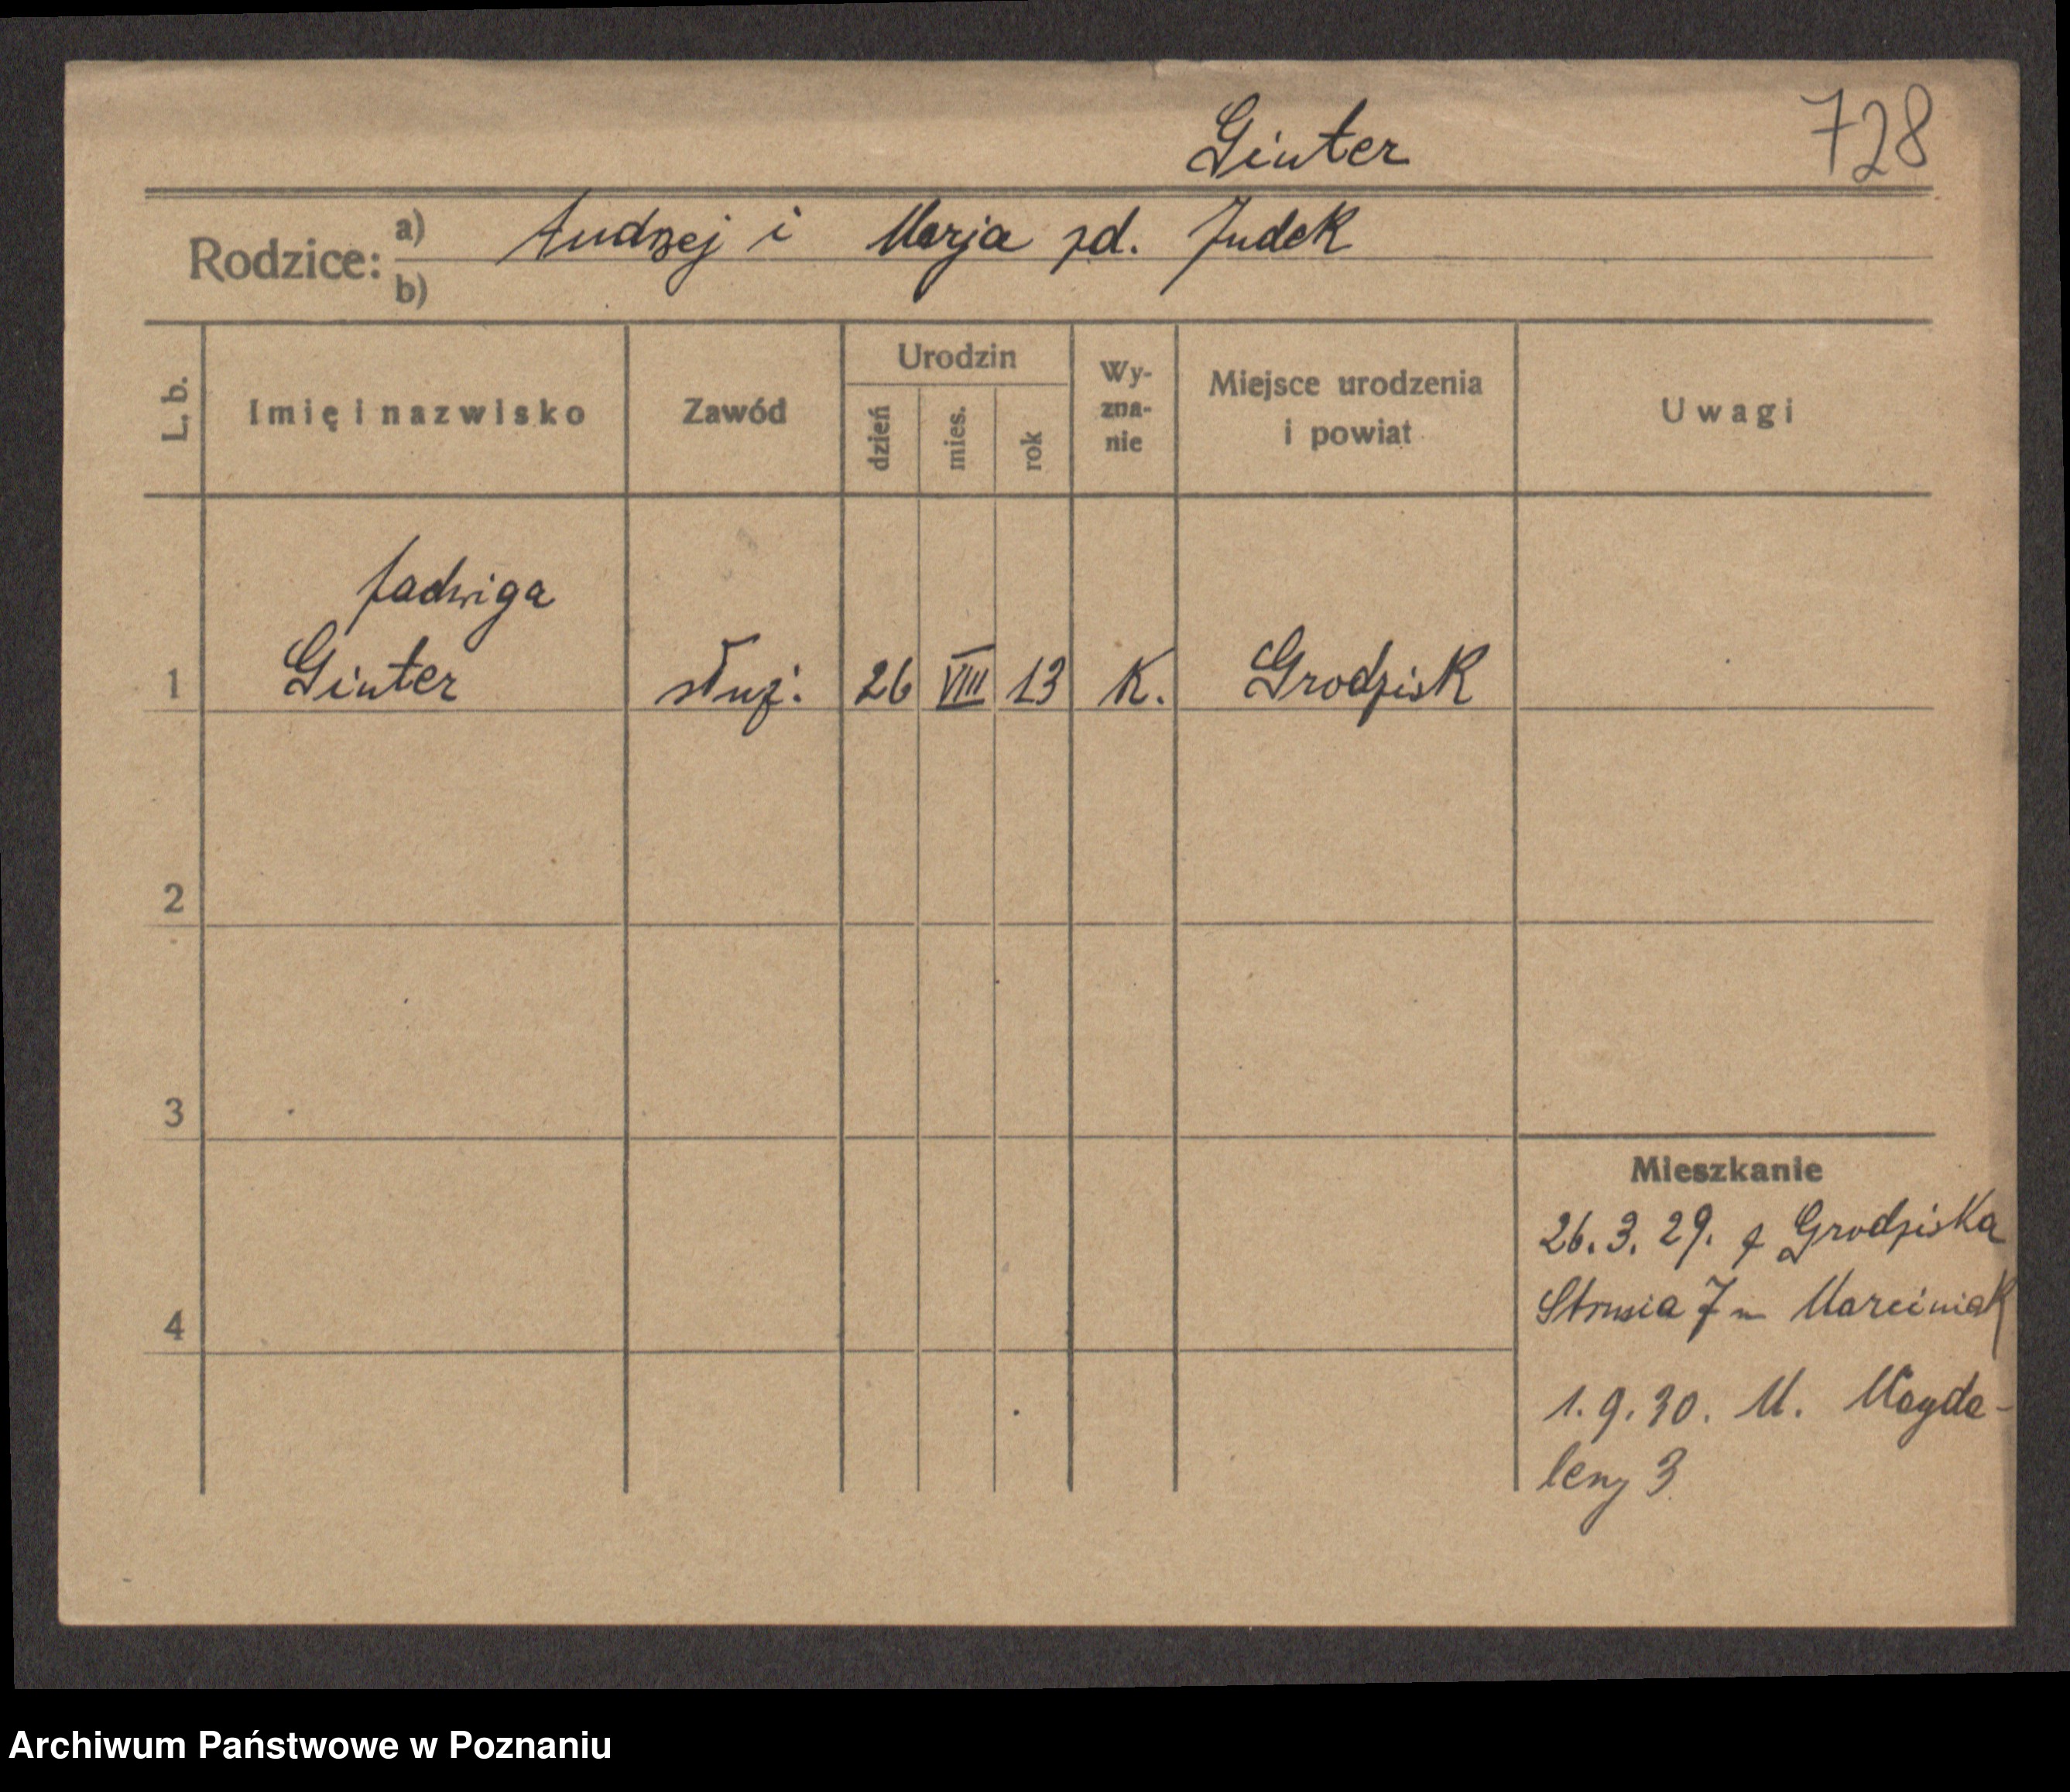 Ginter 728
Rodzice: a) Andrzej i Marja zd. Judek
b)
L. b. Imię i nazwisko Zawód Urodzin dzień mies. rok Wy-zna-nie Miejsce urodzenia i powiat Uwagi
Jadwiga
1 Ginter służ. 26 VIII 13 K. Grodzisk
2
3
Mieszkanie
26.3.29. z Grodziska
4 Strusia 7 m Marciniak
1.9.30. M. Magda-
leny 3
Archiwum Państwowe w Poznaniu